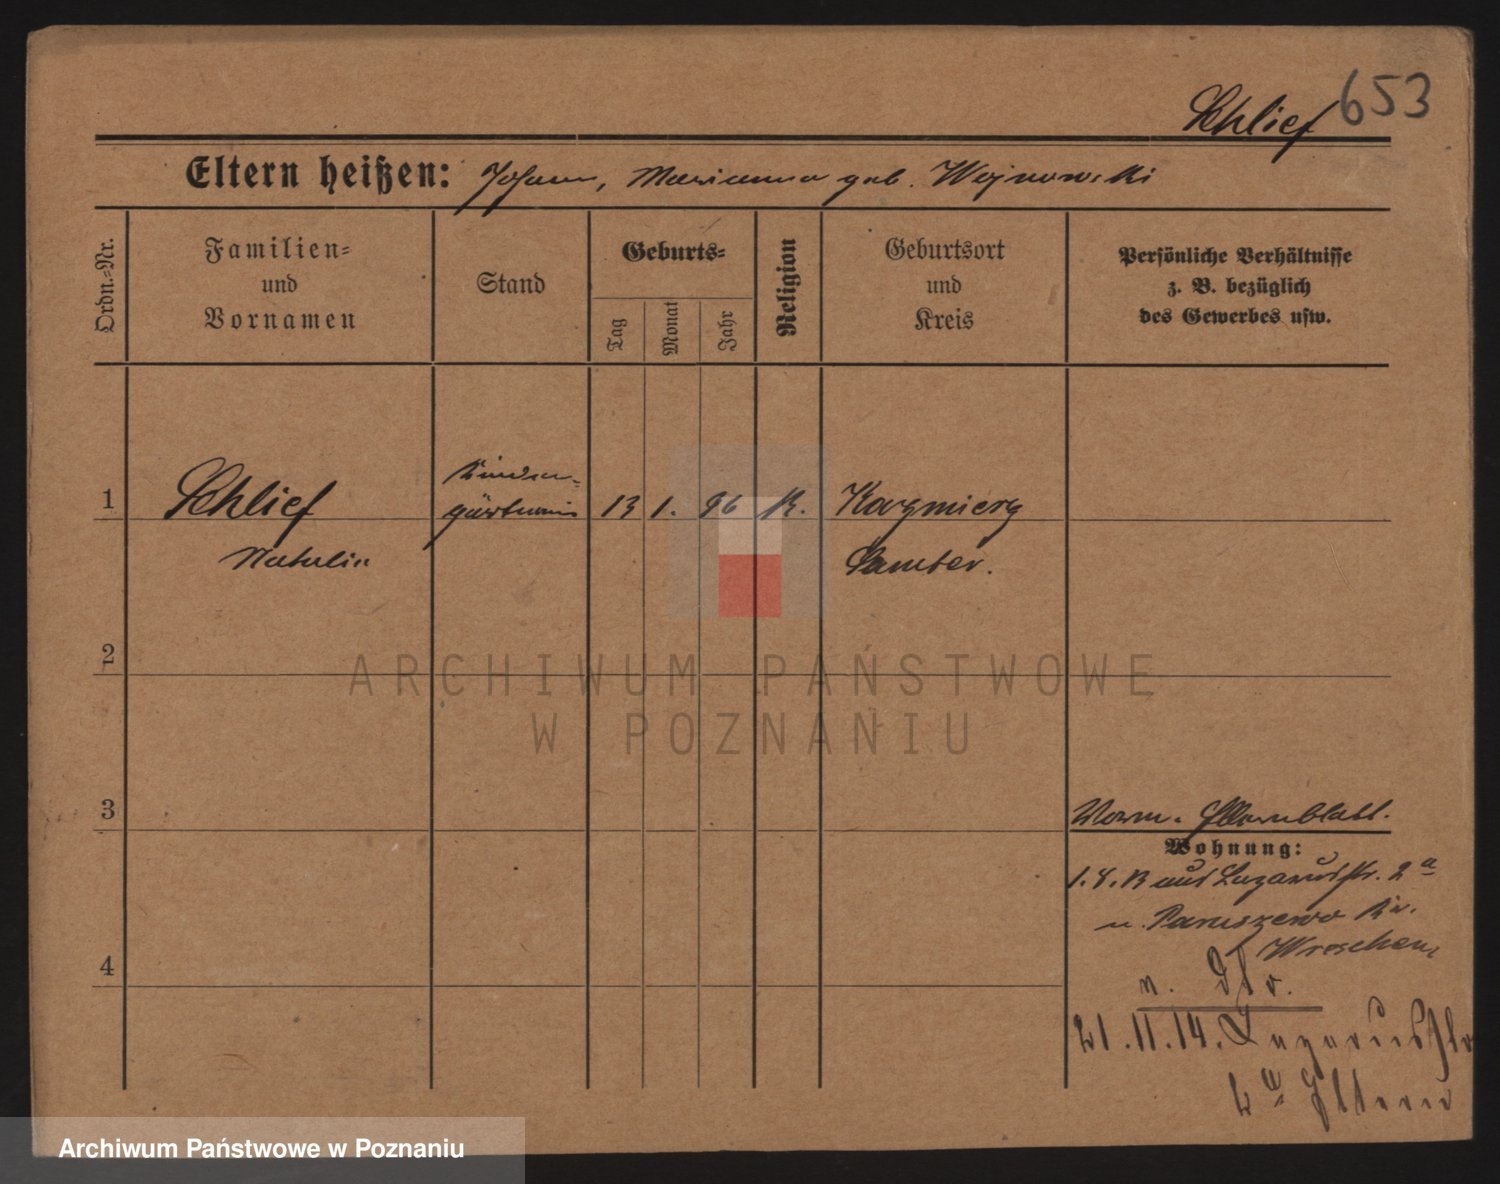 653
Schlief
Eltern heißen: Johann, Marianna geb. Wojnowski
Ordn.-Nr.
Familien-
und
Vornamen
Stand
Geburts-
Tag
Monat
Jahr
Religion
Geburtsort
und
Kreis
Persönliche Verhältnisse
z. B. bezüglich
des Gewerbes usw.
1
Schlief
Natalie
Kinder-
gärtnerin
13
1.
96
K.
Kazmierz
Samter.
2
3
4
Vorm. Elternblatt.
Wohnung:
aus Lazarusstr. 2a
n. Paruszewo Kr.
Wreschen
n. 
21.11.14. Lazarusstr
2a Eltern
ARCHIWUM PAŃSTWOWE
W POZNANIU
Archiwum Państwowe w Poznaniu